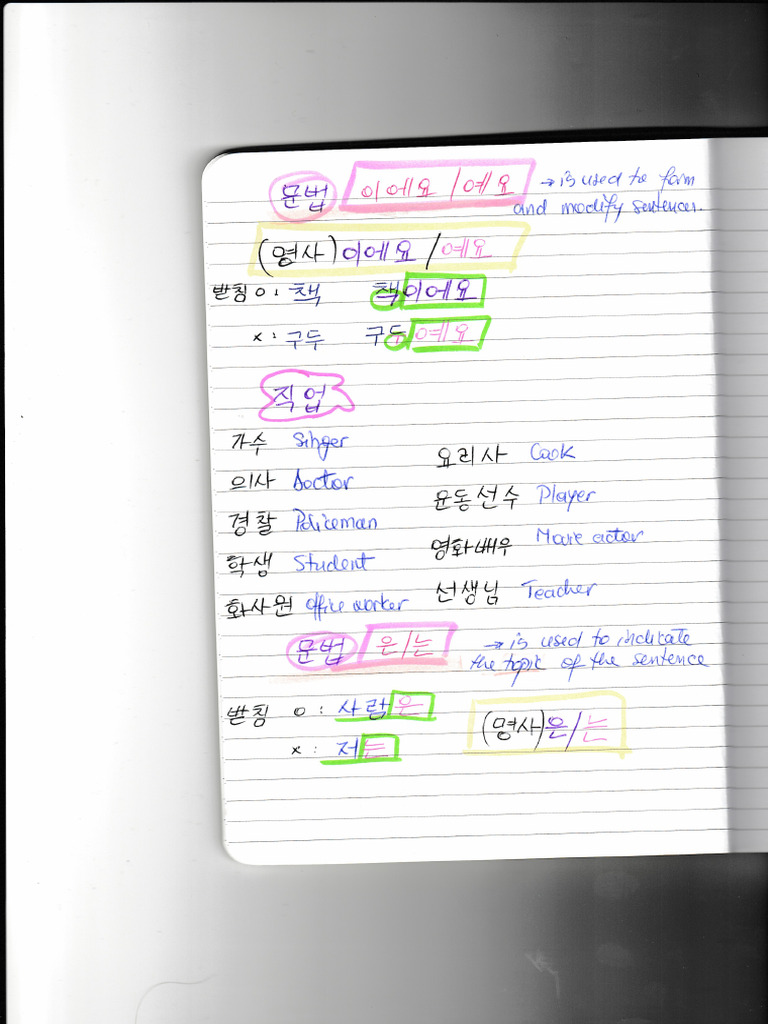 문법 이에요 / 예요 → is used to form
and modify sentences.
(명사) 이에요 / 예요
받침 o : 책 책이에요
x : 구두 구두예요
직업
가수 Singer
의사 Doctor
경찰 Policeman
학생 Student
화사원 office worker
요리사 Cook
운동선수 Player
영화배우 Movie actor
선생님 Teacher
문법 은/는 → is used to indicate
the topic of the sentence
받침 o : 사람은
x : 저는
(명사)은/는